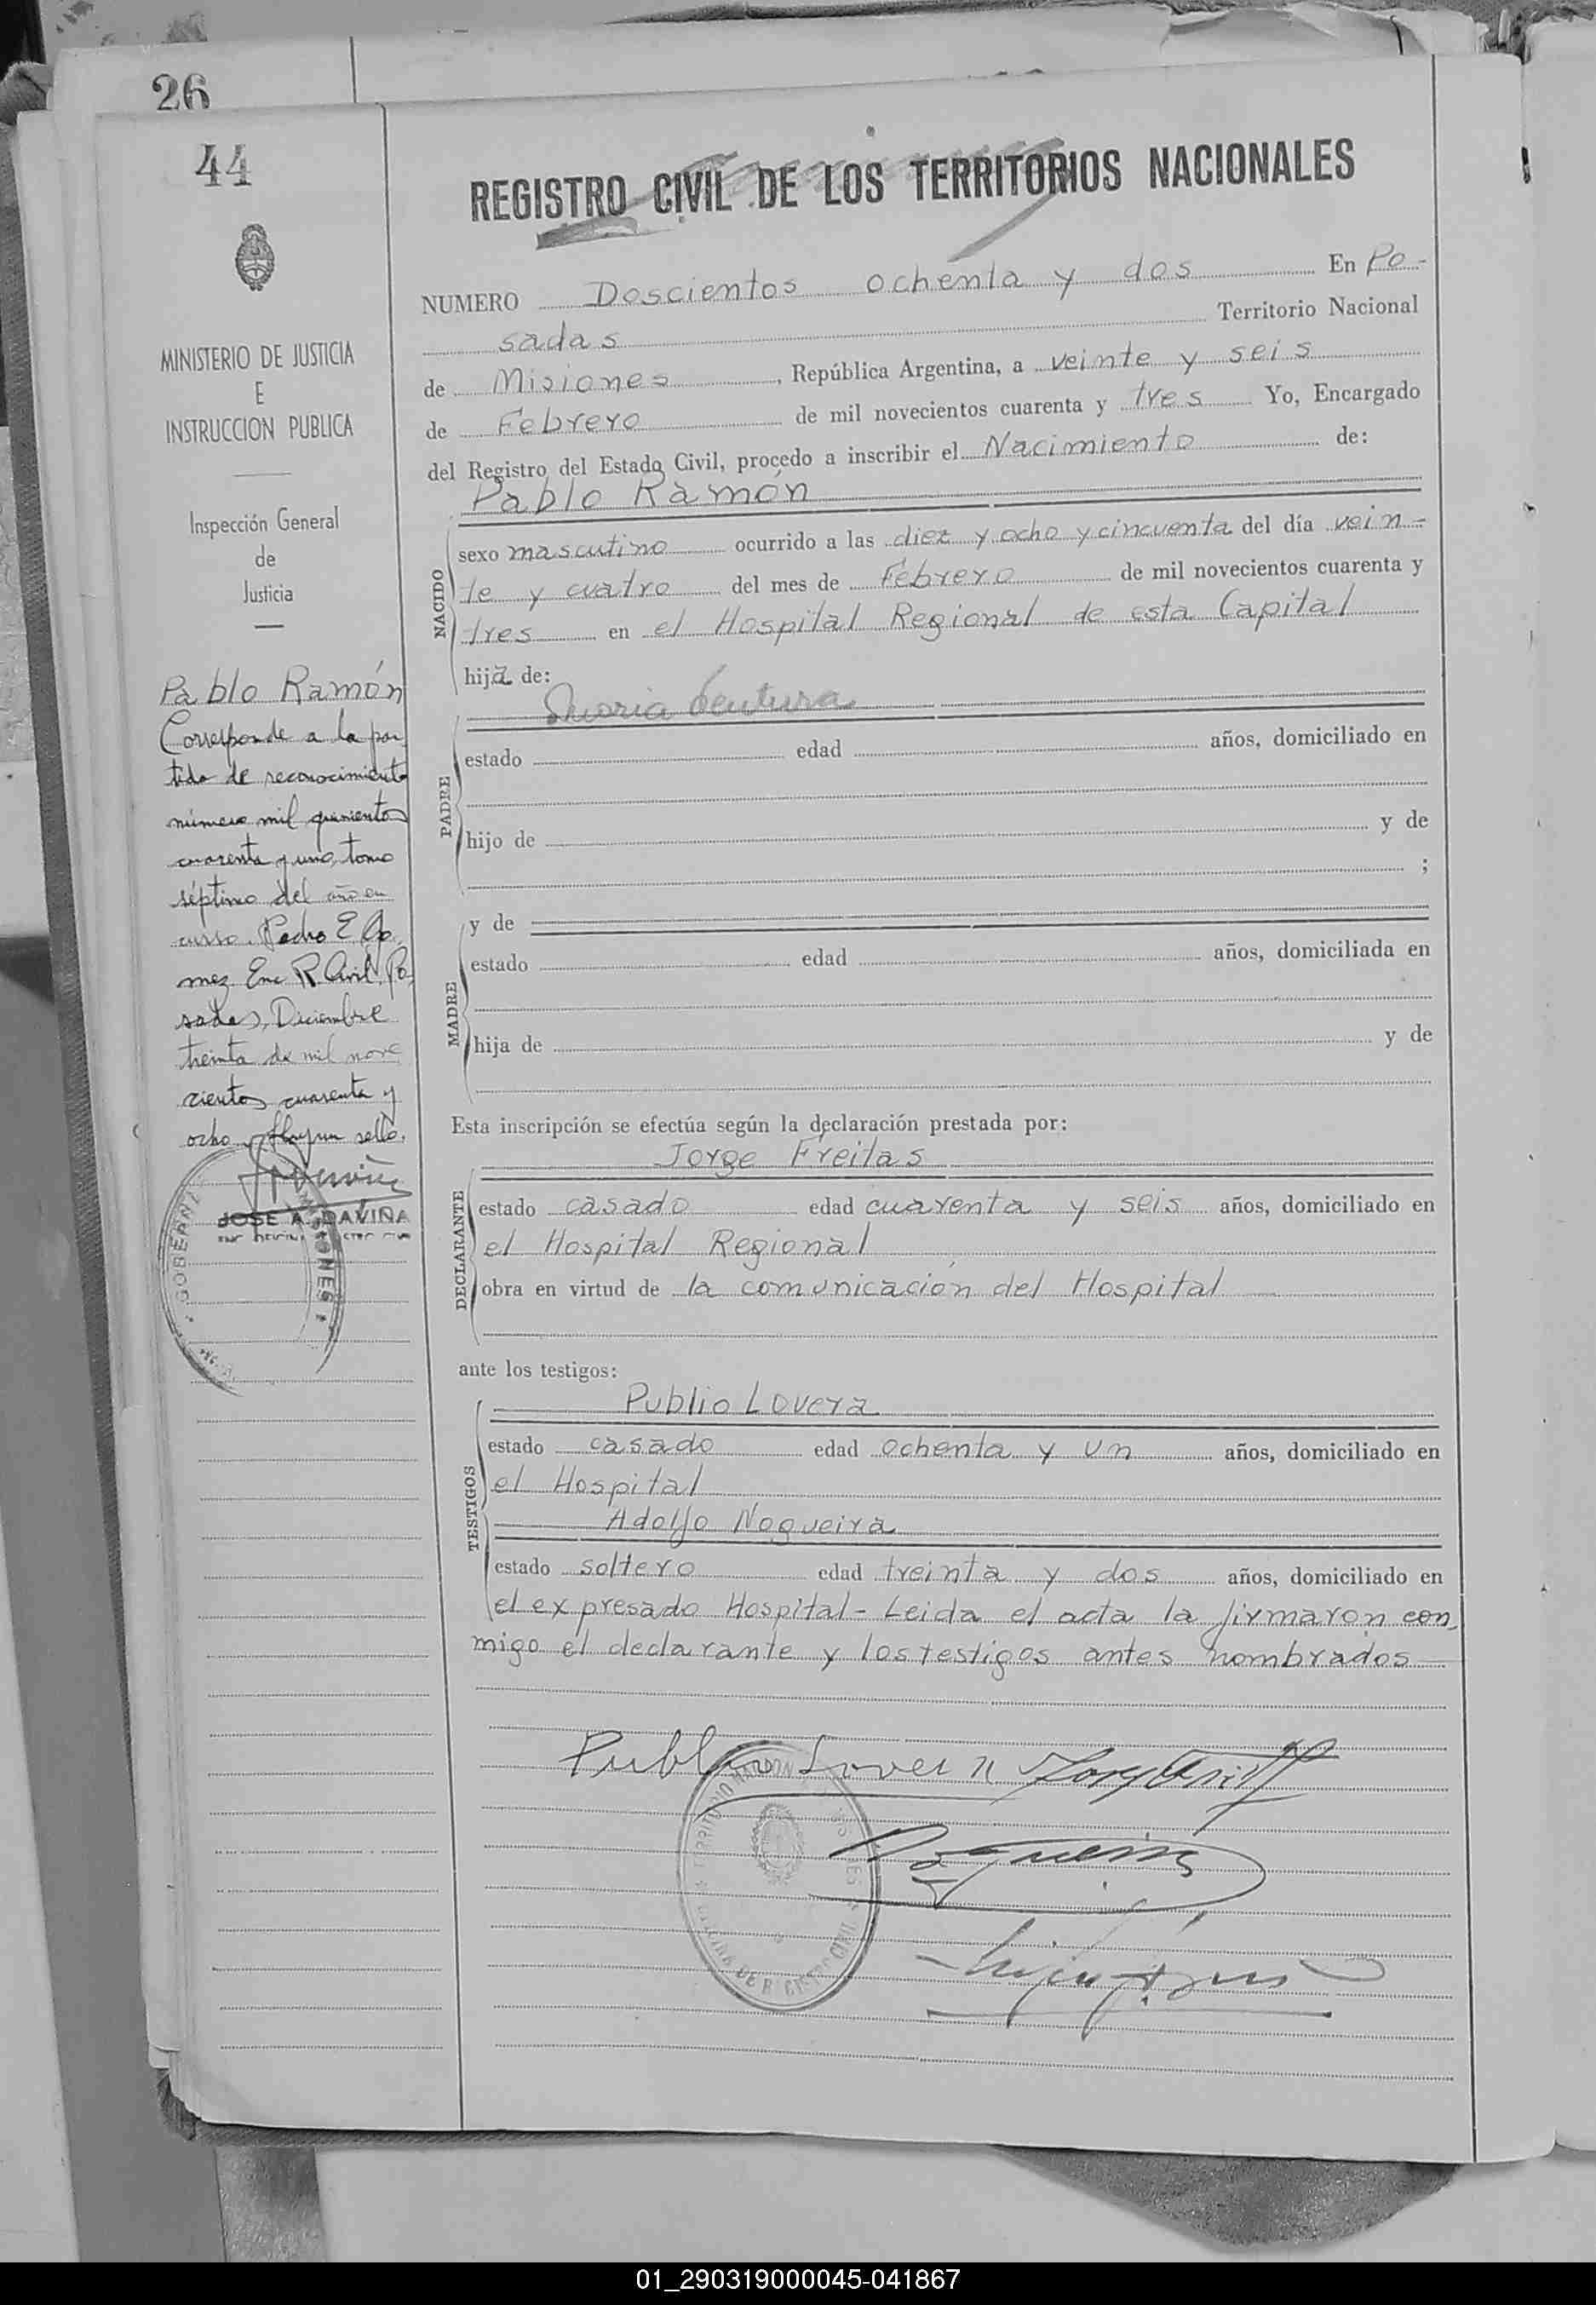 26
44
MINISTERIO DE JUSTICIA
E
INSTRUCCION PUBLICA
Inspección General
de
Justicia
Pablo Ramón
Corresponde a la par
tida de reconocimiento
número mil quinientos
cuarenta y uno, tomo
séptimo del año en
curso. Pedro E Go
mez Enc R. Civil, Po
sadas, Diciembre
treinta de mil nove
cientos cuarenta y
ocho. Hay un sello.
JOSE A. DAVIÑA
GOBERN
MISIONES
REGISTRO CIVIL DE LOS TERRITORIOS NACIONALES
NUMERO Doscientos ochenta y dos En Po-
sadas Territorio Nacional
de Misiones, República Argentina, a veinte y seis
de Febrero de mil novecientos cuarenta y tres Yo, Encargado
del Registro del Estado Civil, procedo a inscribir el Nacimiento de:
Pablo Ramón
NACIDO
sexo masculino ocurrido a las diez y ocho y cincuenta del día vein-
te y cuatro del mes de Febrero de mil novecientos cuarenta y
tres en el Hospital Regional de esta Capital
hija de:
Ventura
PADRE
estado edad años, domiciliado en
hijo de y de
;
MADRE
y de
estado edad años, domiciliada en
hija de y de
Esta inscripción se efectúa según la declaración prestada por:
Jorge Freitas
DECLARANTE
estado casado edad cuarenta y seis años, domiciliado en
el Hospital Regional
obra en virtud de la comunicación del Hospital
ante los testigos:
Publio Lovera
TESTIGOS
estado casado edad ochenta y un años, domiciliado en
el Hospital
Adolfo Nogueira
estado soltero edad treinta y dos años, domiciliado en
el expresado Hospital - Leida el acta la firmaron con
migo el declarante y los testigos antes nombrados
Publio Lover
Nogueira
01_290319000045-041867